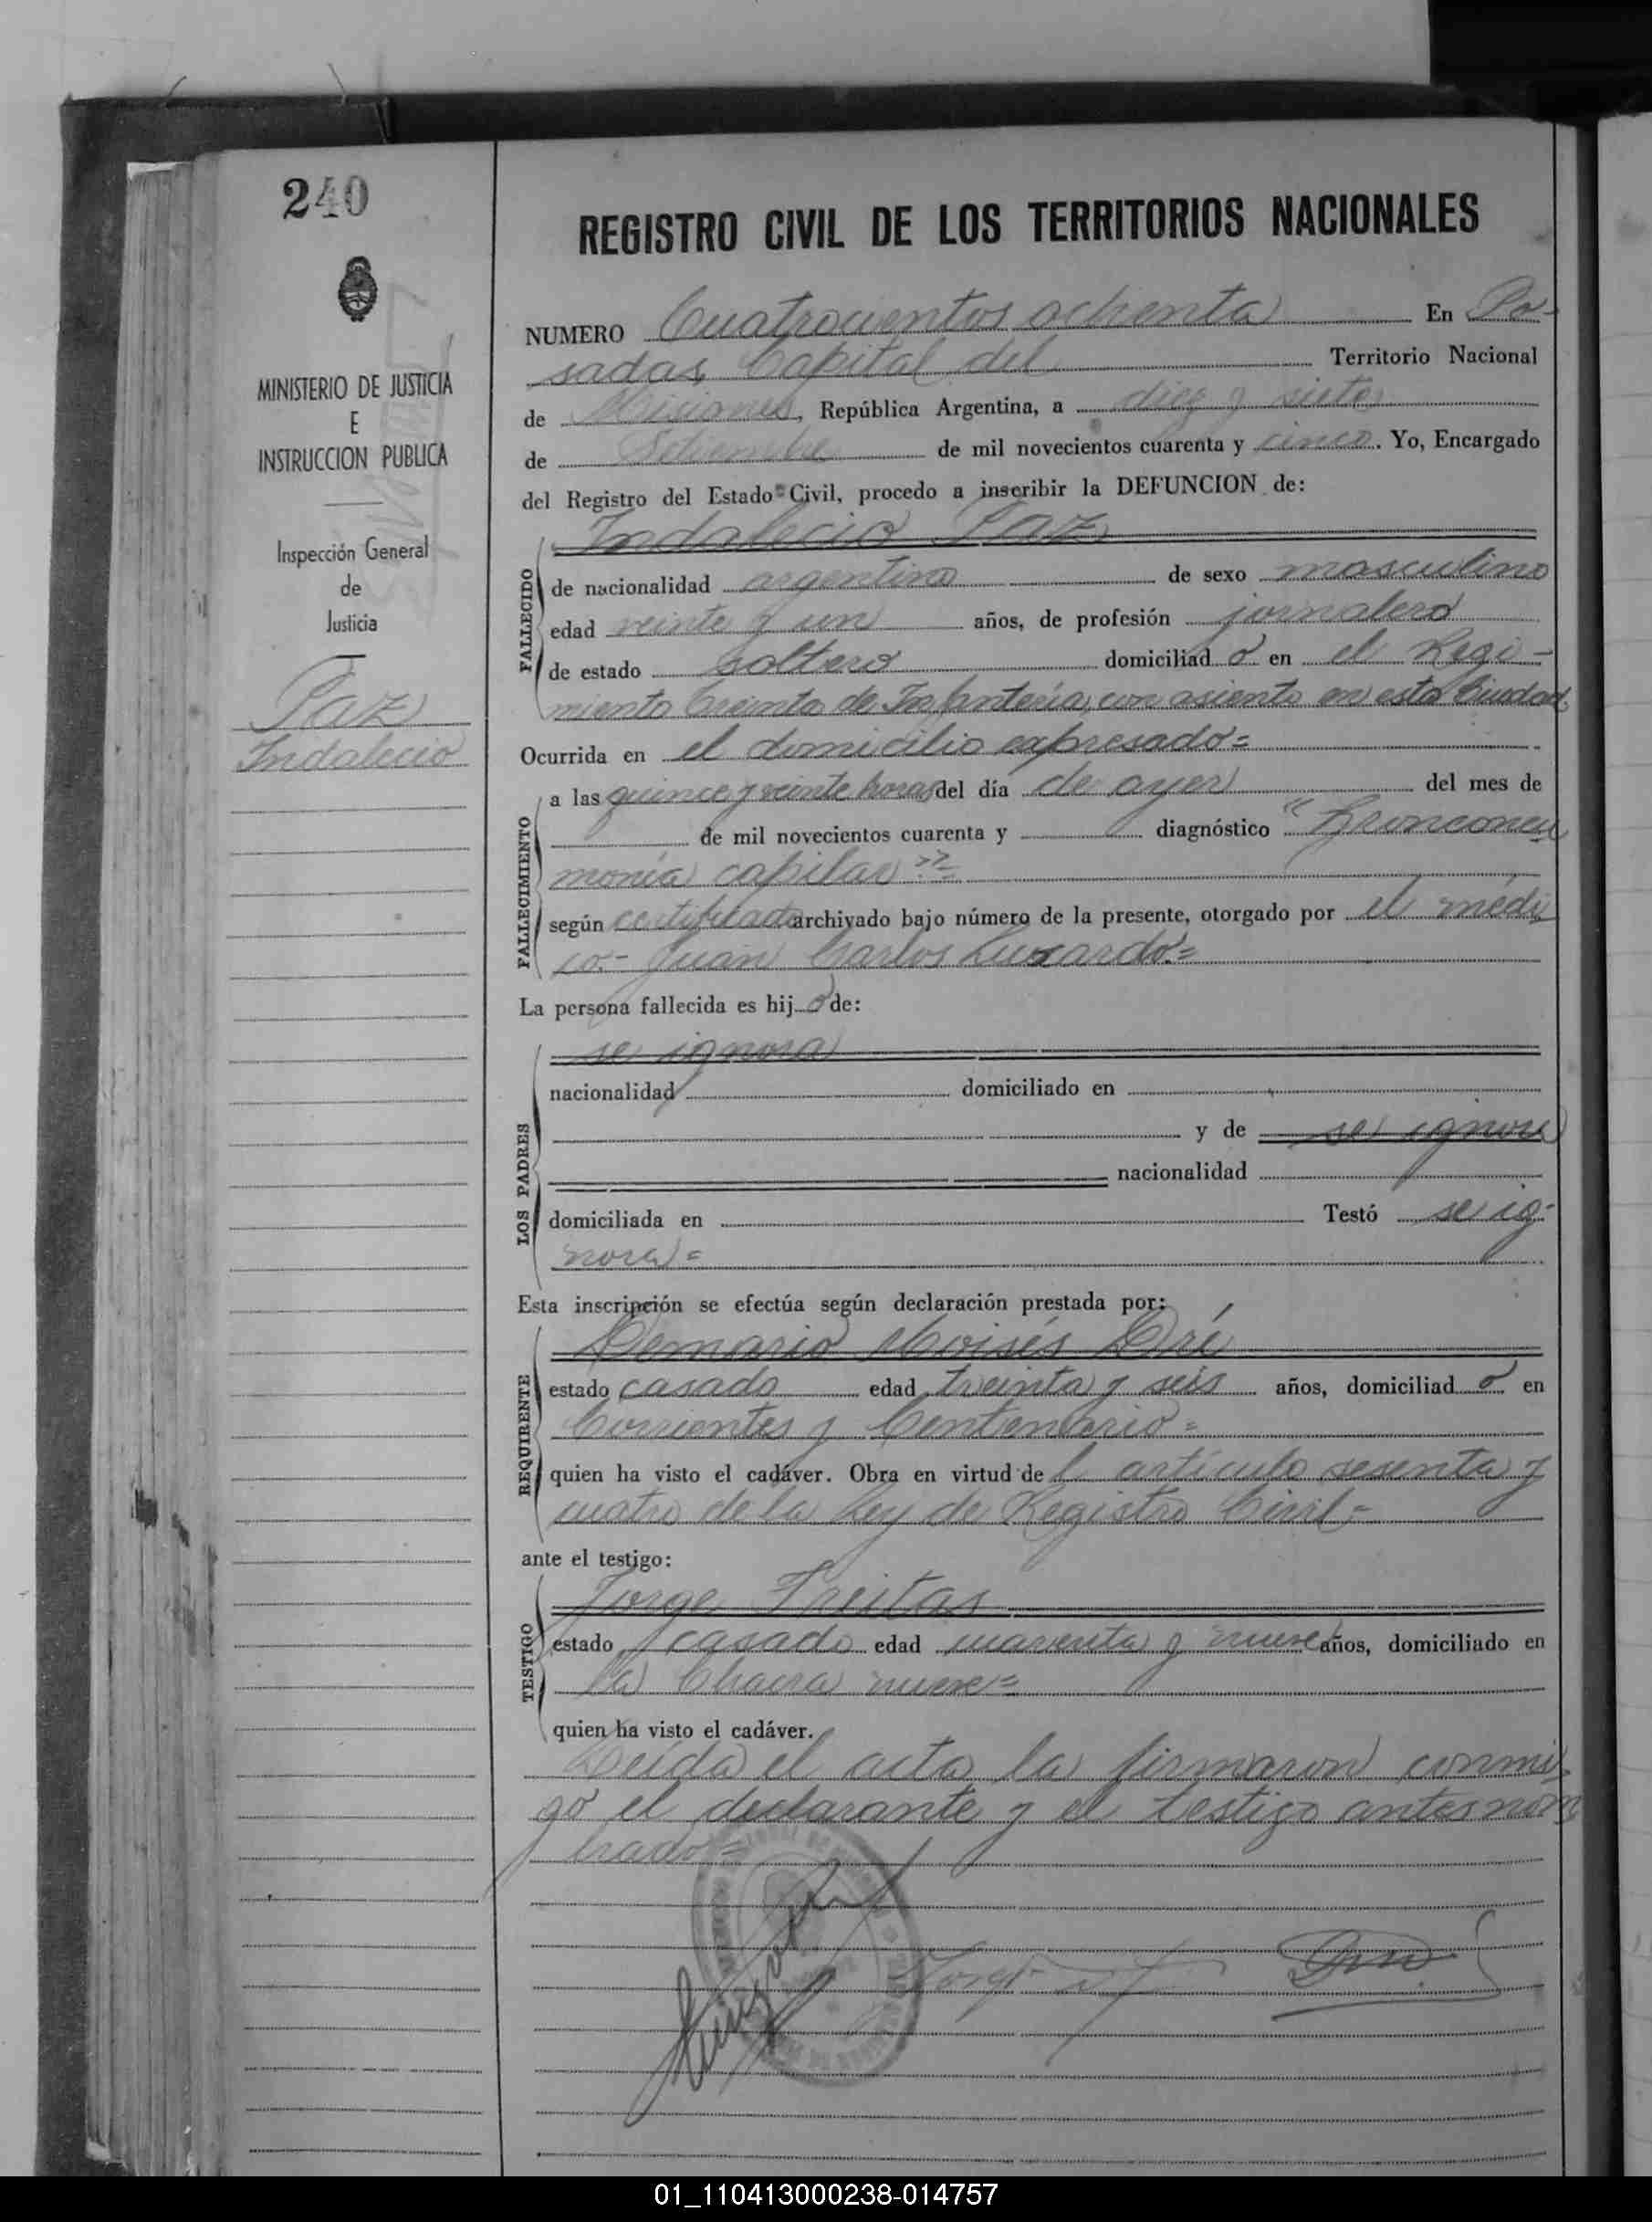 240
MINISTERIO DE JUSTICIA
E
INSTRUCCION PUBLICA
Inspección General
de
Justicia
Paz
Indalecio
REGISTRO CIVIL DE LOS TERRITORIOS NACIONALES
NUMERO Cuatrocientos ochenta En Po-
sadas, Capital del Territorio Nacional
de Misiones, República Argentina, a diez y siete
de Setiembre de mil novecientos cuarenta y cinco. Yo, Encargado
del Registro del Estado Civil, procedo a inscribir la DEFUNCION de:
Indalecio Paz
FALLECIDO
de nacionalidad argentina de sexo masculino
edad veinte y un años, de profesión jornalero
de estado soltero domiciliad o en el Regi-
miento Treinta de Infantería, con asiento en esta Ciudad
Ocurrida en el domicilio expresado=
FALLECIMIENTO
a las quince y veinte horas del día de ayer del mes de
de mil novecientos cuarenta y diagnóstico "Bronconeu
monía capilar"=
según certificado archivado bajo número de la presente, otorgado por el médi
co.- Juan Carlos Luzardo.=
La persona fallecida es hij o de:
LOS PADRES
se ignora
nacionalidad domiciliado en
y de se ignora
nacionalidad
domiciliada en Testó se ig-
nora=
Esta inscripción se efectúa según declaración prestada por:
REQUIRENTE
Demario Moisés Dré
estado casado edad treinta y seis años, domiciliad o en
Corrientes y Centenario=
quien ha visto el cadáver. Obra en virtud de l artículo sesenta y
cuatro de la Ley de Registro Civil=
ante el testigo:
TESTIGO
Jorge Freitas
estado casado edad cuarenta y nueve años, domiciliado en
la Chacra nueve=
quien ha visto el cadáver.
Leída el acta la firmaron conmi-
go el declarante y el testigo antes nom
brado=
Jorge
01_110413000238-014757